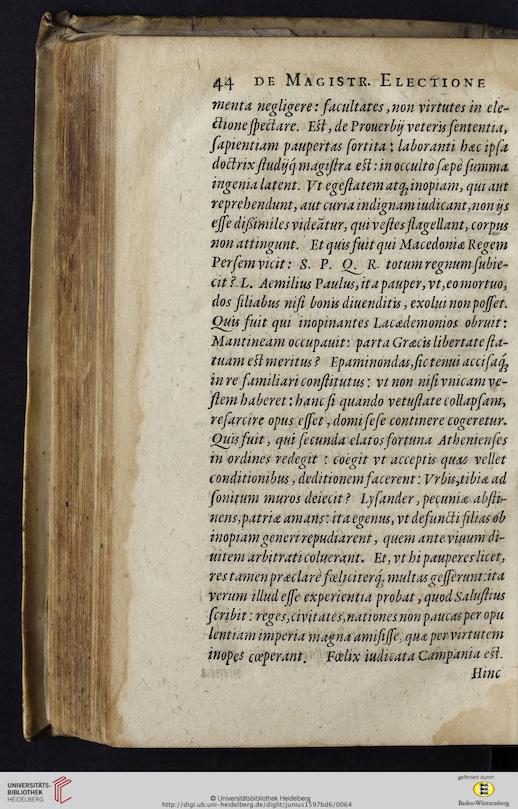 44 DE MAGISTR. ELECTIONE
menta negligere: facultates, non virtutes in ele-
ctione spectare. Est, de Prouerbij veteris sententia,
sapientiam paupertas sortita: laboranti hæc ipsa
doctrix studijq́ magistra est: in occulto sæpè summa
ingenia latent. Vt egestatem atq́, inopiam, qui aut
reprehendunt, aut curia indignam iudicant, non ijs
esse dißimiles videātur, qui vestes flagellant, corpus
non attingunt. Et quis fuit qui Macedoniæ Regem
Persem vicit: S. P. Q. R. totum regnum subie-
cit? L. Aemilius Paulus, ita pauper, vt, eo mortuo,
dos filiabus nisi bonis diuenditis, exolui non posset.
Quis fuit qui inopinantes Lacædemonios obruit:
Mantineam occupauit: parta Græcis libertate sta-
tuam est meritus? Epaminondas, sic tenui accisaq́,
in re familiari constitutus: vt non nisi vnicam ve-
stem haberet: hanc si quando vetustate collapsam,
resarcire opus esset, domi sese continere cogeretur.
Quis fuit, qui secunda elatos fortuna Athenienses
in ordines redegit : coëgit vt acceptis quas vellet
conditionibus, deditionem facerent: Vrbis, tibiæ ad
sonitum muros deiecit? Lysander, pecuniæ absti-
nens, patriæ amans: ita egenus, vt defuncti filias ob
inopiam generi repudiarent, quem ante viuum di-
uitem arbitrati coluerant. Et, vt hi pauperes licet,
res tamen præclarè fœliciterq́, multas gesserunt: ita
verum illud esse experientia probat, quod Salustius
scribit: reges, civitates, nationes non paucas per opu
lentiam imperia magna amisisse, quæ per virtutem
inopes cœperant. Fœlix iudicata Campania est.
Hinc
UNIVERSITÄTS-
BIBLIOTHEK
HEIDELBERG
© Universitätsbibliothek Heidelberg
http://digi.ub.uni-heidelberg.de/diglit/junius1597bd6/0064
gefördert durch
Baden-Württemberg